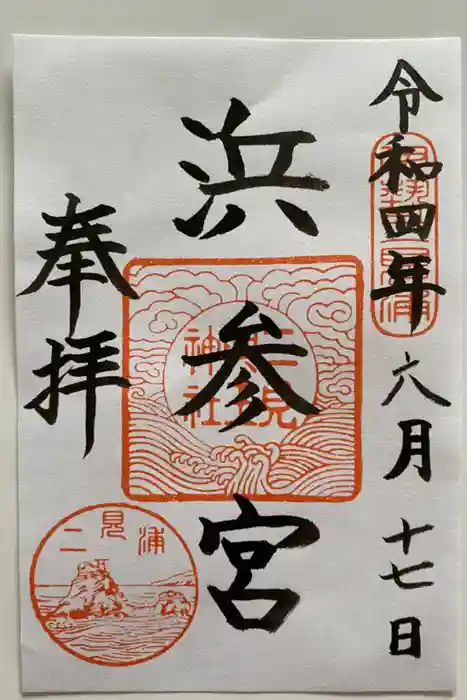 令和四年六月十七日
伊勢二見浦
浜参宮
二見興玉神社
奉拝
二見浦